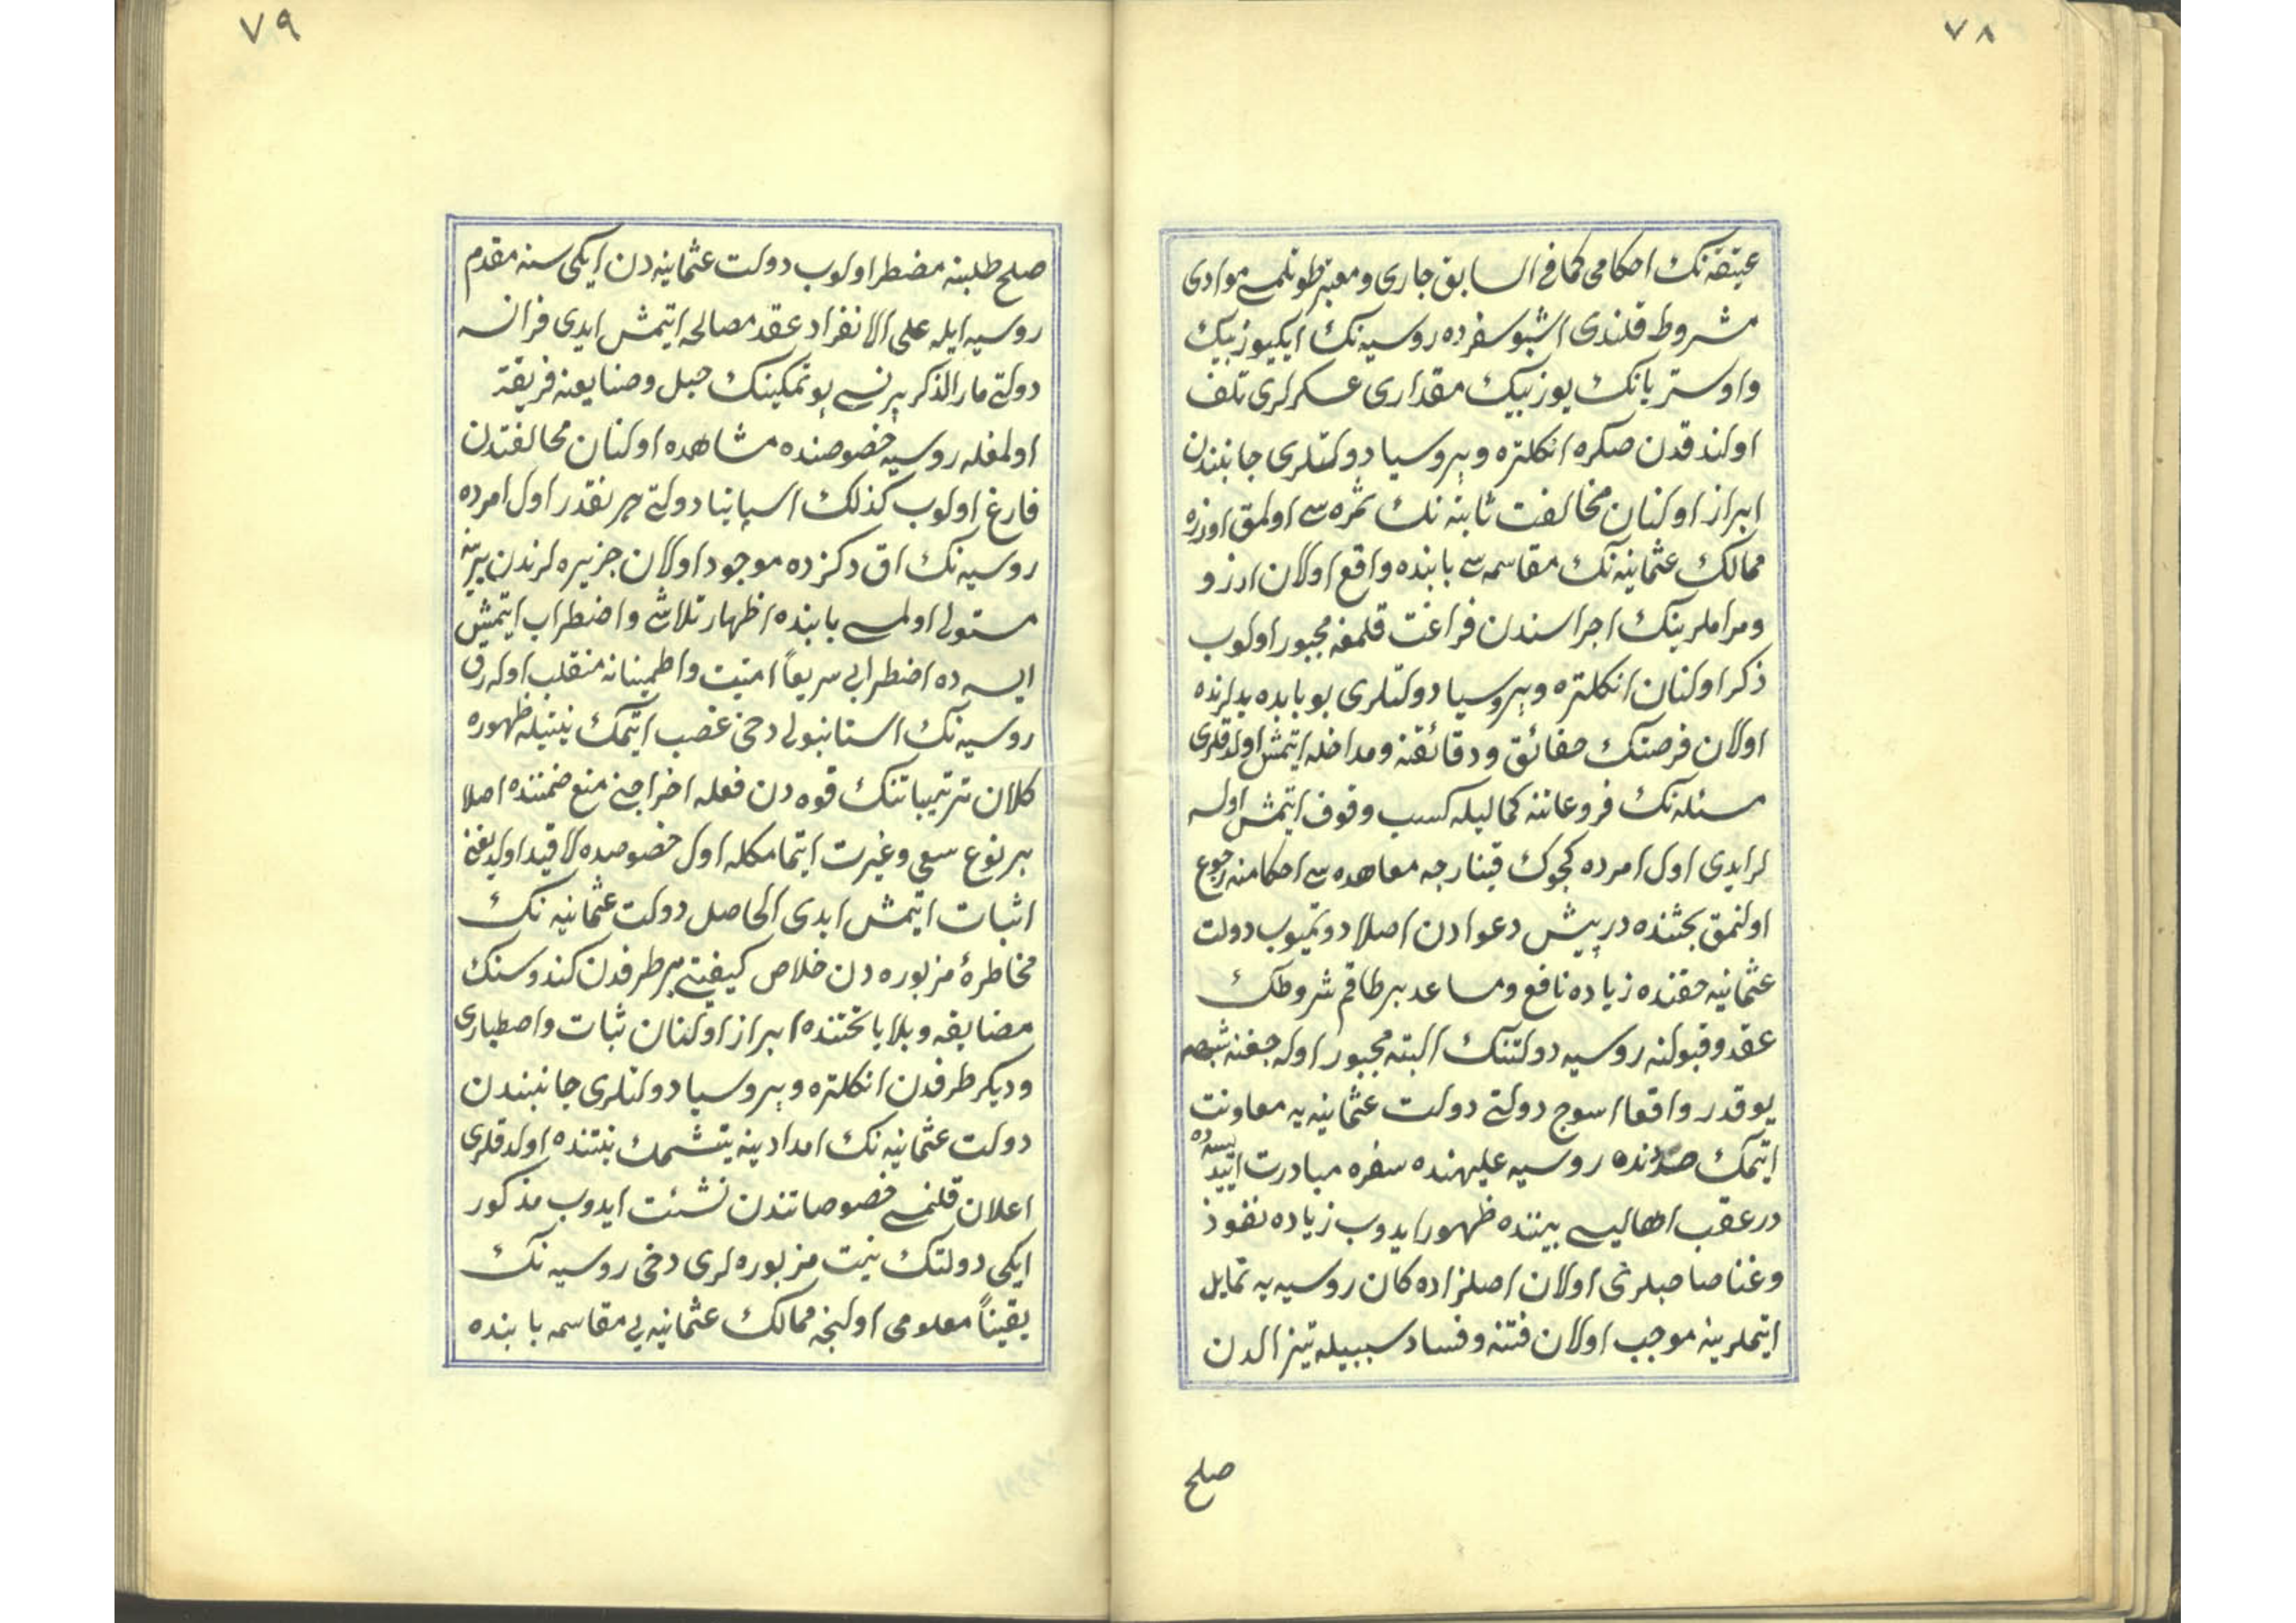 ٧٨
عتیقه‌نك احکامی کما فی السابق جاری و معتبر طوتلمسی موادی
مشروط قلندی اشبو سفرده روسیه‌نك ایکیوز بیك
و اوستریانك یوز بیك مقداری عسکرلری تلف
اولندقدن صکره انکلتره و پروسیا دولتلری جانبندن
ابراز اولنان مخالفت ثابته‌نك ثمره‌سی اولمق اوزره
ممالك عثمانیه‌نك مقاسمه‌سی بابنده واقع اولان ارزو
و مراملرینك اجراسندن فراغت قلمغه مجبور اولوب
ذکر اولنان انکلتره و پروسیا دولتلری بو بابده یدلرنده
اولان فرصتك حقائق و دقائقنه و مداخله ایتمش اولدقلری
مسئله‌نك فروعاتنه کمالیله کسب وقوف ایتمش اولسه
لر ایدی اول امرده کجوك قینارجه معاهده‌سی احکامنه رجوع
اولنمق بحثنده درپیش دعوادن اصلا دونمیوب دولت
عثمانیه حقنده زیاده نافع و مساعد بر طاقم شروطك
عقد و قبولنه روسیه دولتنك البته مجبور اوله‌جغنه شبهه
یوقدر واقعا اسوج دولتی دولت عثمانیه‌یه معاونت
ایتمك صددنده روسیه علیهنده سفره مبادرت ایتدیسه‌ده
در عقب اهالیسی بیننده ظهور ایدوب زیاده نفوذ
و غنا صاحبلری اولان اصلزاده‌کان روسیه‌یه تمایل
ایتملرینه موجب اولان فتنه و فساد سببیله تیز الدن
صلح
٧٩
صلح طلبنه مضطر اولوب دولت عثمانیه‌دن ایکی سنه مقدم
روسیه ایله علی الانفراد عقد مصالحه ایتمش ایدی فرانسه
دولتی مار الذکر پرنسی پوتمکینك حیل و صنایعنه فریفته
اولمغله روسیه خصوصنده مشاهده اولنان مخالفتدن
فارغ اولوب کذلك اسپانیا دولتی هر نقدر اول امرده
روسیه‌نك اق دکزده موجود اولان جزیره‌لرندن برینه
مستولی اولمسی بابنده اظهار تلاشی و اضطراب ایتمش
ایسه‌ده اضطرابی سریعاً امنیت و اطمینانه منقلب اوله‌رق
روسیه‌نك استانبولی دخی غصب ایتمك نیتیله ظهوره
کلان ترتیباتنك قوه‌دن فعله اخراجنی منع ضمننده اصلا
بر نوع سعی و غیرت ایتمامکله اول خصوصده لاقید اولدیغنی
اثبات ایتمش ایدی الحاصل دولت عثمانیه‌نك
مخاطرهٔ مزبوره‌دن خلاص کیفیتی بر طرفدن کندوسنك
مضایقه و بلایا تحتنده ابراز اولنان ثبات و اصطباری
و دیکر طرفدن انکلتره و پروسیا دولتلری جانبندن
دولت عثمانیه‌نك امدادینه یتشمك نیتنده اولدقلری
اعلان قلنمسی خصوصاتندن نشئت ایدوب مذکور
ایکی دولتك نیت مزبوره‌لری دخی روسیه‌نك
یقیناً معلومی اولنجه ممالك عثمانیه‌یی مقاسمه بابنده